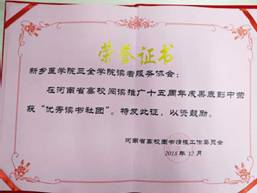 荣誉证书
新乡医学院三全学院读者服务协会：
在河南省高校阅读推广十五周年成果展彰中荣
获“优秀读书社团”。特发此证，以资鼓励。
河南省高校图书情报工作委员会
2018年12月